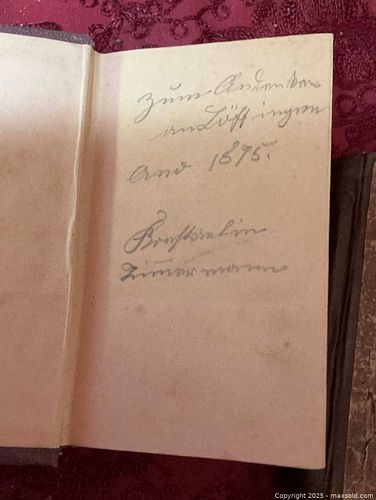 Zum Andenken
an Löffingen
And 1895.
Konstantin
Zimmermann
© Copyright 2025 - maxsold.com